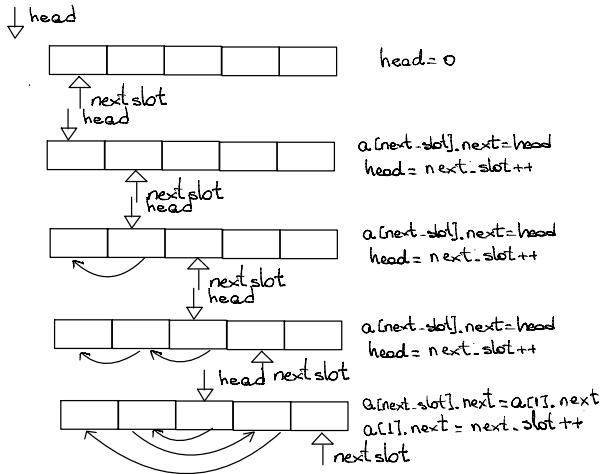 head
head = 0
next slot
head
a[next_slot].next=head
head = next_slot++
next slot
head
a[next_slot].next=head
head = next_slot++
next slot
head
a[next_slot].next=head
head = next_slot++
head next slot
a[next_slot].next = a[1].next
a[1].next = next_slot++
next slot